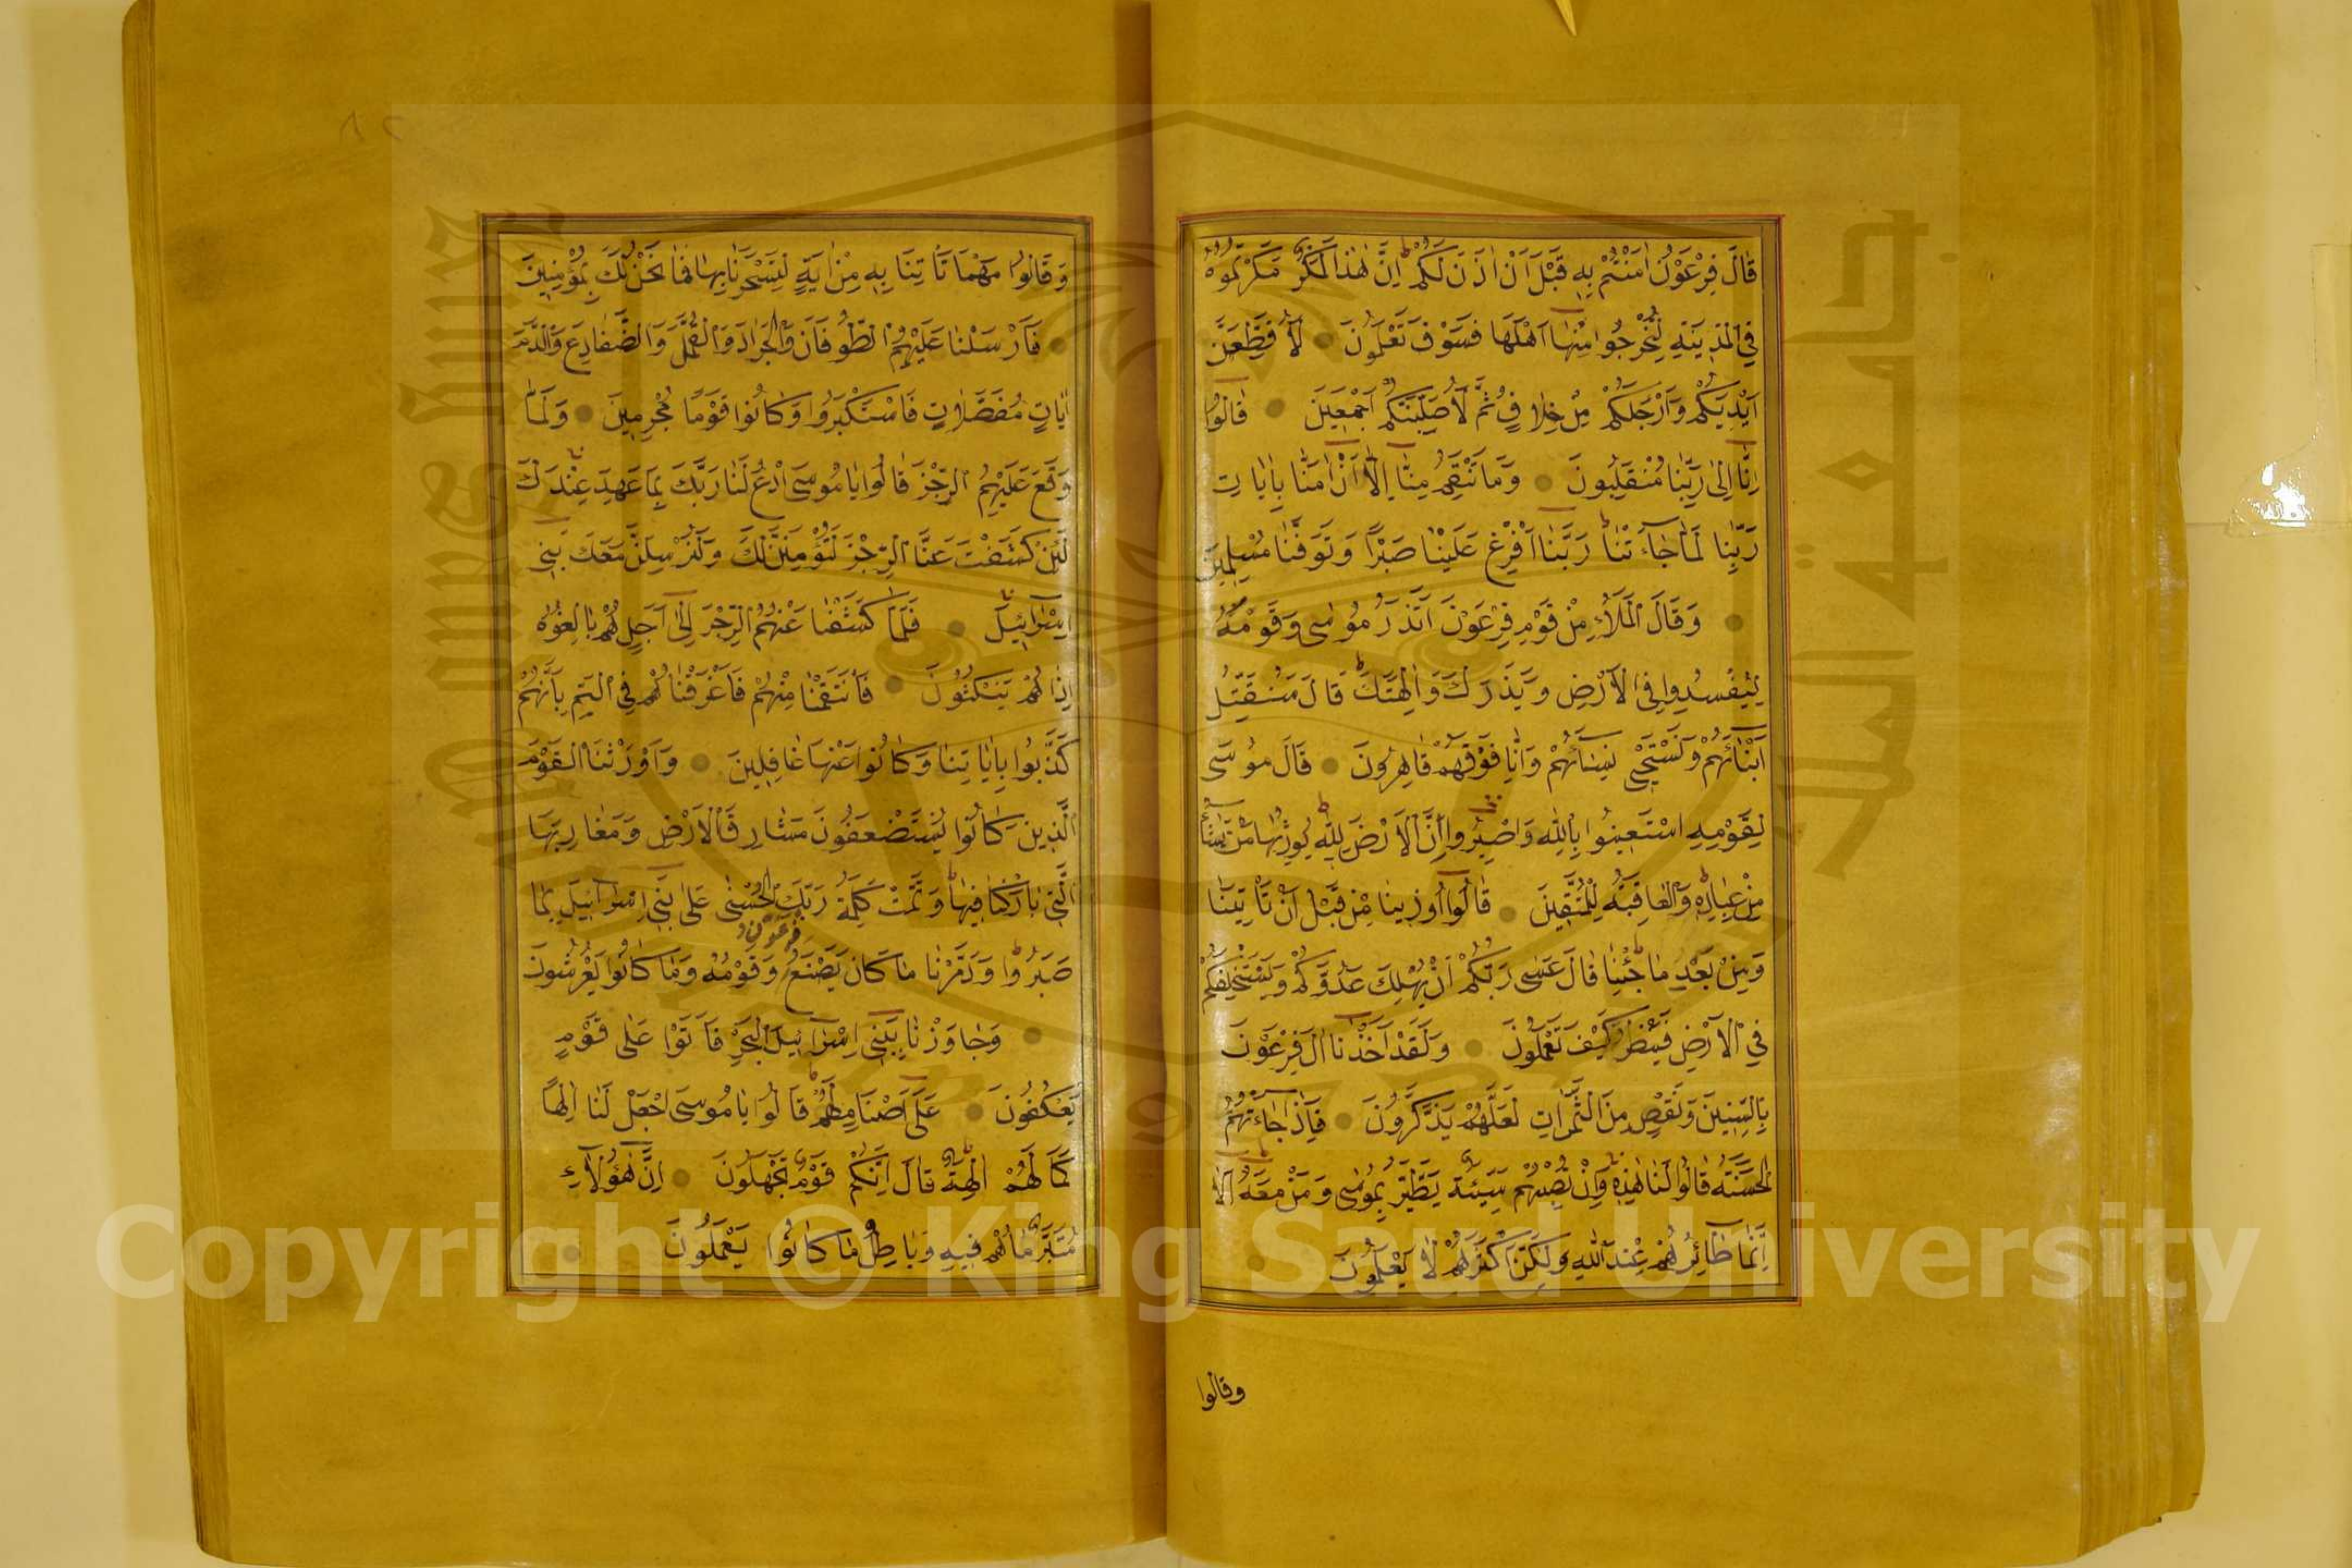 قَالَ فِرْعَوْنُ اٰمَنْتُمْ بِهِ قَبْلَ اَنْ اٰذَنَ لَكُمْ اِنَّ هٰذَا لَمَكْرٌ مَكَرْتُمُوهُ
فِي الْمَدِينَةِ لِتُخْرِجُوا مِنْهَا اَهْلَهَا فَسَوْفَ تَعْلَمُونَ لَاُقَطِّعَنَّ
اَيْدِيَكُمْ وَاَرْجُلَكُمْ مِنْ خِلَافٍ ثُمَّ لَاُصَلِّبَنَّكُمْ اَجْمَعِينَ قَالُوا
اِنَّا اِلٰى رَبِّنَا مُنْقَلِبُونَ وَمَا تَنْقِمُ مِنَّا اِلَّا اَنْ اٰمَنَّا بِاٰيَاتِ
رَبِّنَا لَمَّا جَاءَتْنَا رَبَّنَا اَفْرِغْ عَلَيْنَا صَبْرًا وَتَوَفَّنَا مُسْلِمِينَ
وَقَالَ الْمَلَأُ مِنْ قَوْمِ فِرْعَوْنَ اَتَذَرُ مُوسٰى وَقَوْمَهُ
لِيُفْسِدُوا فِي الْاَرْضِ وَيَذَرَكَ وَاٰلِهَتَكَ قَالَ سَنُقَتِّلُ
اَبْنَاءَهُمْ وَنَسْتَحْيِي نِسَاءَهُمْ وَاِنَّا فَوْقَهُمْ قَاهِرُونَ قَالَ مُوسٰى
لِقَوْمِهِ اسْتَعِينُوا بِاللّٰهِ وَاصْبِرُوا اِنَّ الْاَرْضَ لِلّٰهِ يُورِثُهَا مَنْ يَشَاءُ
مِنْ عِبَادِهِ وَالْعَاقِبَةُ لِلْمُتَّقِينَ قَالُوا اُوذِينَا مِنْ قَبْلِ اَنْ تَأْتِيَنَا
وَمِنْ بَعْدِ مَا جِئْتَنَا قَالَ عَسٰى رَبُّكُمْ اَنْ يُهْلِكَ عَدُوَّكُمْ وَيَسْتَخْلِفَكُمْ
فِي الْاَرْضِ فَيَنْظُرَ كَيْفَ تَعْمَلُونَ وَلَقَدْ اَخَذْنَا اٰلَ فِرْعَوْنَ
بِالسِّنِينَ وَنَقْصٍ مِنَ الثَّمَرَاتِ لَعَلَّهُمْ يَذَّكَّرُونَ فَاِذَا جَاءَتْهُمُ
الْحَسَنَةُ قَالُوا لَنَا هٰذِهِ وَاِنْ تُصِبْهُمْ سَيِّئَةٌ يَطَّيَّرُوا بِمُوسٰى وَمَنْ مَعَهُ اَلَا
اِنَّمَا طَائِرُهُمْ عِنْدَ اللّٰهِ وَلٰكِنَّ اَكْثَرَهُمْ لَا يَعْلَمُونَ
وقالوا
وَقَالُوا مَهْمَا تَأْتِنَا بِهِ مِنْ اٰيَةٍ لِتَسْحَرَنَا بِهَا فَمَا نَحْنُ لَكَ بِمُؤْمِنِينَ
فَاَرْسَلْنَا عَلَيْهِمُ الطُّوفَانَ وَالْجَرَادَ وَالْقُمَّلَ وَالضَّفَادِعَ وَالدَّمَ
اٰيَاتٍ مُفَصَّلَاتٍ فَاسْتَكْبَرُوا وَكَانُوا قَوْمًا مُجْرِمِينَ وَلَمَّا
وَقَعَ عَلَيْهِمُ الرِّجْزُ قَالُوا يَا مُوسَى ادْعُ لَنَا رَبَّكَ بِمَا عَهِدَ عِنْدَكَ
لَئِنْ كَشَفْتَ عَنَّا الرِّجْزَ لَنُؤْمِنَنَّ لَكَ وَلَنُرْسِلَنَّ مَعَكَ بَنِي
اِسْرَائِيلَ فَلَمَّا كَشَفْنَا عَنْهُمُ الرِّجْزَ اِلٰى اَجَلٍ هُمْ بَالِغُوهُ
اِذَا هُمْ يَنْكُثُونَ فَانْتَقَمْنَا مِنْهُمْ فَاَغْرَقْنَاهُمْ فِي الْيَمِّ بِاَنَّهُمْ
كَذَّبُوا بِاٰيَاتِنَا وَكَانُوا عَنْهَا غَافِلِينَ وَاَوْرَثْنَا الْقَوْمَ
الَّذِينَ كَانُوا يُسْتَضْعَفُونَ مَشَارِقَ الْاَرْضِ وَمَغَارِبَهَا
الَّتِي بَارَكْنَا فِيهَا وَتَمَّتْ كَلِمَةُ رَبِّكَ الْحُسْنٰى عَلٰى بَنِي اِسْرَائِيلَ بِمَا
صَبَرُوا وَدَمَّرْنَا مَا كَانَ يَصْنَعُ فِرْعَوْنُ وَقَوْمُهُ وَمَا كَانُوا يَعْرِشُونَ
وَجَاوَزْنَا بِبَنِي اِسْرَائِيلَ الْبَحْرَ فَاَتَوْا عَلٰى قَوْمٍ
يَعْكُفُونَ عَلٰى اَصْنَامٍ لَهُمْ قَالُوا يَا مُوسَى اجْعَلْ لَنَا اِلٰهًا
كَمَا لَهُمْ اٰلِهَةٌ قَالَ اِنَّكُمْ قَوْمٌ تَجْهَلُونَ اِنَّ هٰؤُلَاءِ
مُتَبَّرٌ مَا هُمْ فِيهِ وَبَاطِلٌ مَا كَانُوا يَعْمَلُونَ
Copyright © King Saud University